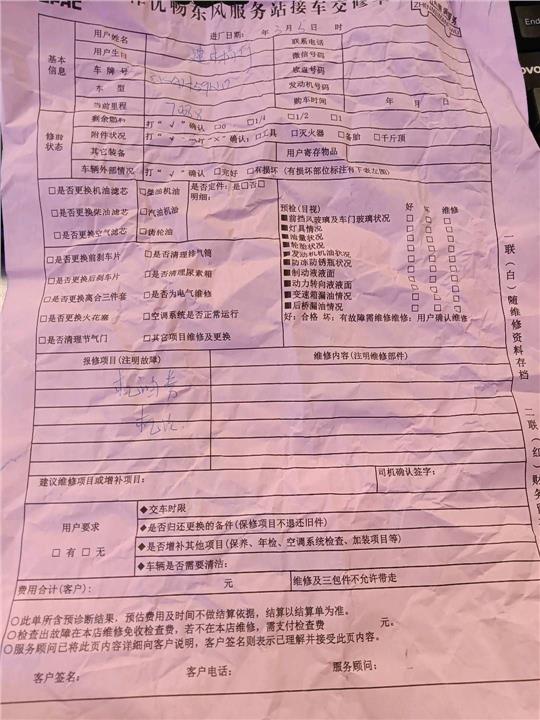 优畅东风服务站接车交修单
用户姓名 进厂日期: 年 3月6日 联系电话
用户生日 微信号码
基本信息 车牌号 底盘号码
车 型 发动机号码
当前里程 购车时间 年 月 日
剩余燃料 打“√”确认 □0 □1/4 □1/2 □1
修前状态 附件状况 确认: □工具 □灭火器 □备胎 □千斤顶
其它装备 用户寄存物品
车辆外部情况 打“√”确认 □完好 □有损坏(有损坏部位标注在下表左图)
□是否更换机油滤芯 □柴油机油 是否定件: 是□否□
明细:
□是否更换柴油滤芯 □汽油机油
□是否更换空气滤芯 □齿轮油
预检(目视) 好 坏 维修
■前挡风玻璃及车门玻璃状况 □ □ □
■灯具情况 □ □ □
■油量状况 □ □ □
■轮胎状况 □ □ □
■发动机机油状况 □ □ □
■防冻防锈瓶状况 □ □ □
■制动液液面 □ □ □
■动力转向液液面 □ □ □
■变速箱漏油情况 □ □ □
■后桥漏油情况 □ □ □
好: 合格 坏: 有故障需维修维修: 用户确认维修
□是否更换前刹车片 □是否清理排气筒
□是否更换后刹车片 □是否清理尿素箱
□是否更换离合三件套 □是否为电气维修
□是否更换火花塞 □空调系统是否正常运行
□是否清理节气门 □其它项目维修及更换
报修项目(注明故障) 维修内容(注明维修部件)
建议维修项目或增补项目: 司机确认签字:
用户要求
□ 有 □ 无
◆交车时限
◆是否归还更换的备件(保修项目不退还旧件)
◆是否增补其他项目(保养、年检、空调系统检查、加装项目等)
◆车辆是否需要清洁:
费用合计(客户): 元 维修及三包件不允许带走
○此单所含预诊断结果, 预估费用及时间不做结算依据, 结算以结算单为准。
○检查出故障在本店维修免收检查费, 若不在本店维修, 需支付检查费 元。
○服务顾问已将此页内容详细向客户说明, 客户签名则表示已理解并接受此页内容。
客户签名: 客户电话: 服务顾问:
一联(白)随维修资料存档
二联(红)财务
End